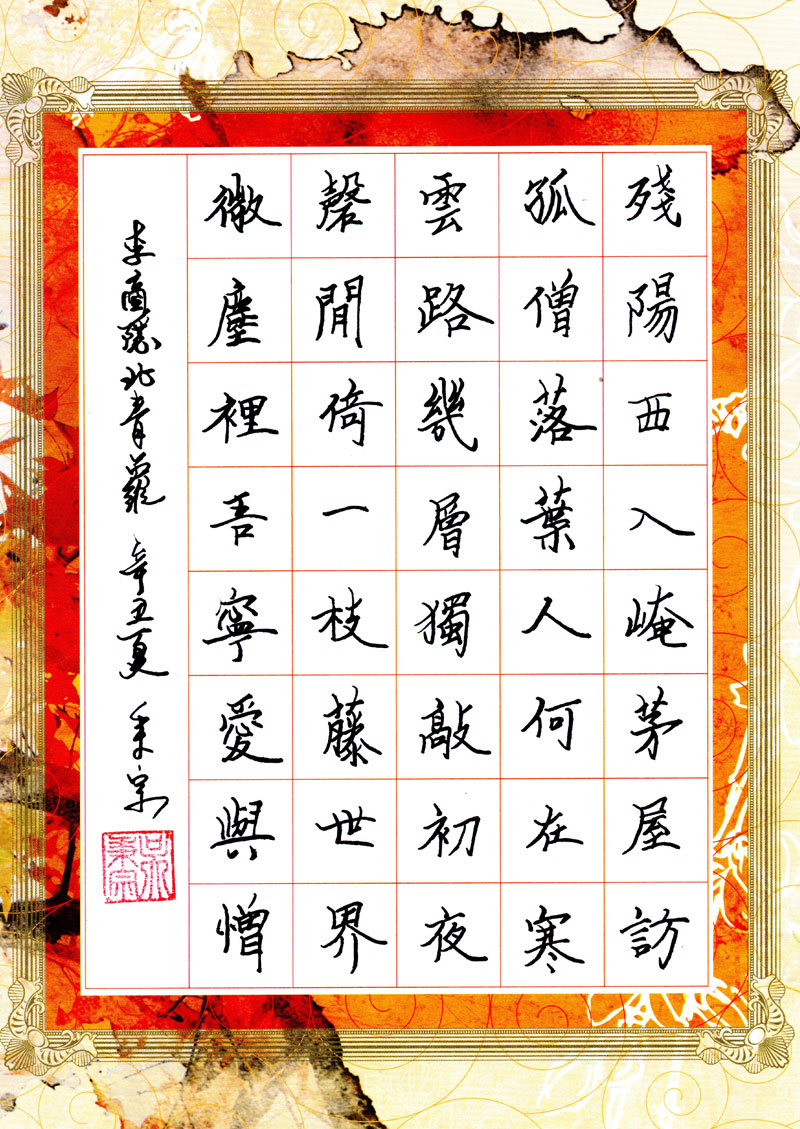 殘陽西入崦茅屋訪
孤僧落葉人何在寒
雲路幾層獨敲初夜
磬閒倚一枝藤世界
微塵裡吾寧愛與憎
李商隱北青蘿 辛丑夏 秉宗